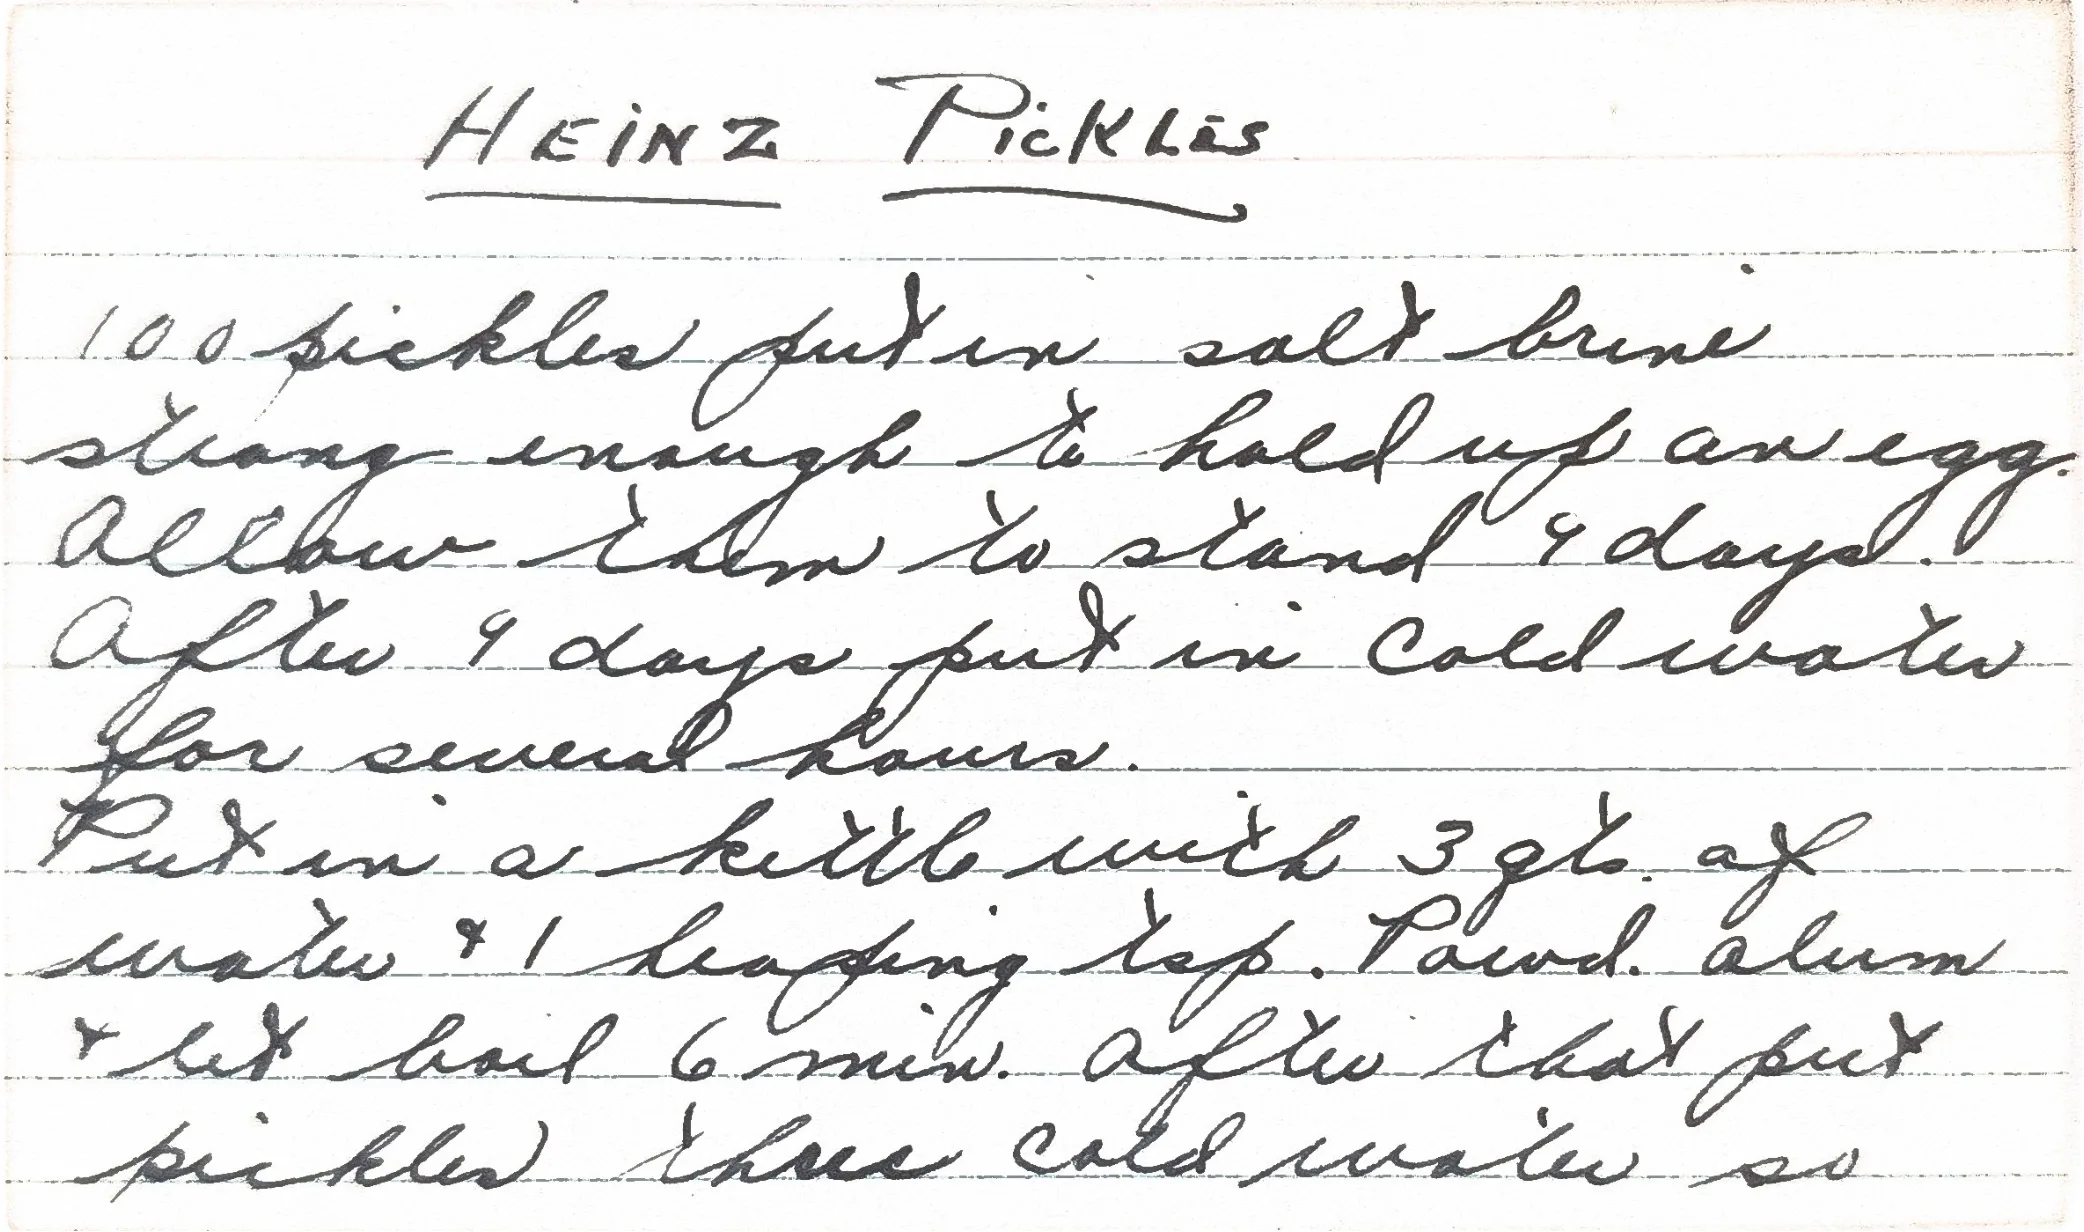 HEINZ PICKLES
100 pickles put in salt brine
strong enough to hold up an egg.
Allow them to stand 9 days.
After 9 days put in cold water
for several hours.
Put in a kettle with 3 qts. of
water & 1 heaping tsp. Powd. alum
& let boil 6 min. After that put
pickles thru cold water so